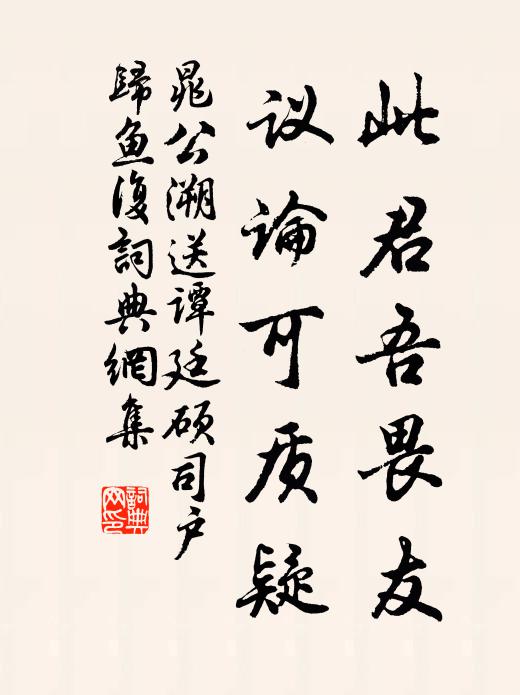 此君吾畏友
议論可质疑
晁公溯送谭廷硕司户
歸鱼復詞典網集
詞典网印